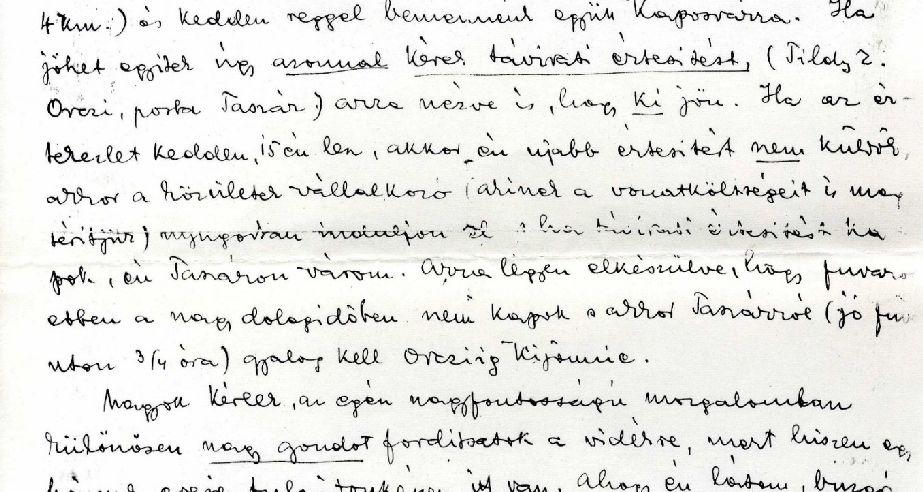 4 km.) és kedden reggel bemennénk együtt Kaposvárra. Ha
jöhet egyitek úgy azonnal kérek távirati értesítést, (Tildy Z.
Orczi, posta Taszár) arra nézve is, hogy ki jön. Ha az ér-
tekezlet kedden, 15 én lesz, akkor én ujabb értesítést nem küldök,
akkor a közületek vállalkozó (akinek a vonatköltségeit is meg
térítjük) nyugodtan induljon el s ha távirati értesítést ka
pok, én Taszáron várom. Arra legyen elkészülve, hogy fuvaro
ebben a nagy dologidőben nem kapok s akkor Taszárról (jó
uton 3/4 óra) gyalog kell Orcziig kijönnie.
Nagyon kérlek, az egész nagyfontosságú mozgalomban
különösen nagy gondot fordítsatok a vidékre, mert hiszen
úgy van, ahogy én látom,